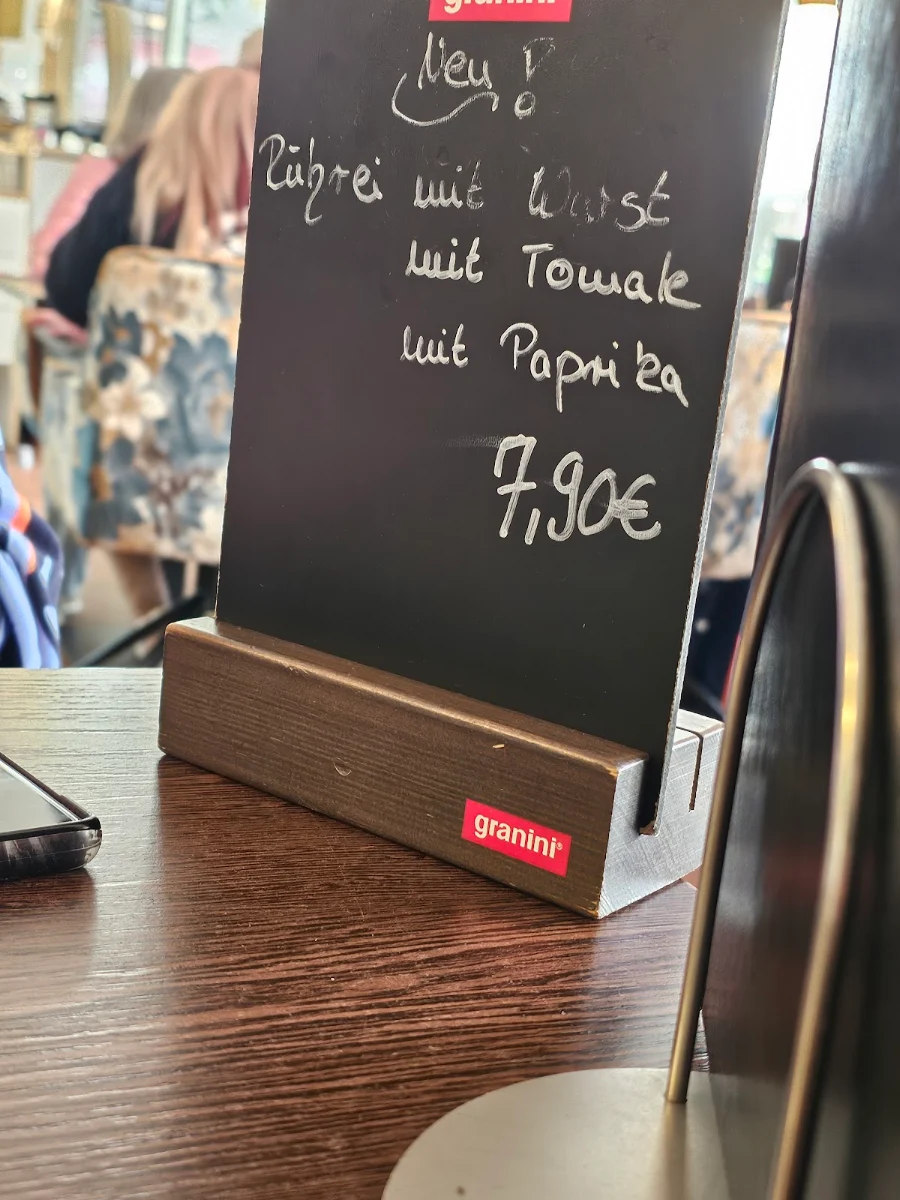 granini
Neu!
Rührei mit Wurst
mit Tomate
mit Paprika
7,90€
granini®